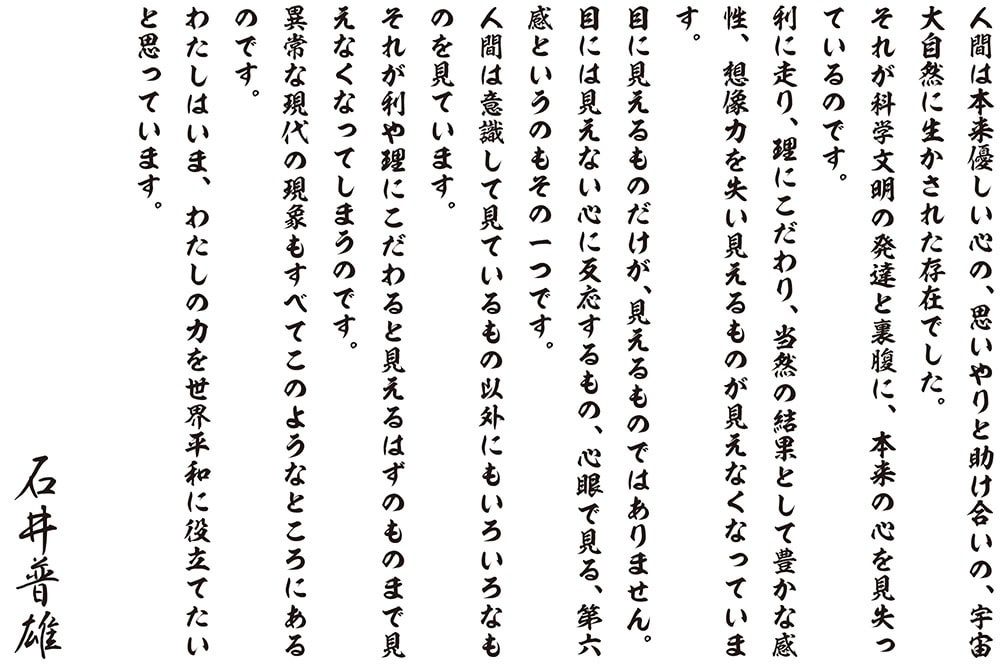 人間は本来優しい心の、思いやりと助け合いの、宇宙
大自然に生かされた存在でした。
それが科学文明の発達と裏腹に、本来の心を見失っ
ているのです。
利に走り、理にこだわり、当然の結果として豊かな感
性、想像力を失い見えるものが見えなくなっていま
す。
目に見えるものだけが、見えるものではありません。
目には見えない心に反応するもの、心眼で見る、第六
感というのもその一つです。
人間は意識して見ているもの以外にもいろいろなも
のを見ています。
それが利や理にこだわると見えるはずのものまで見
えなくなってしまうのです。
異常な現代の現象もすべてこのようなところにある
のです。
わたしはいま、わたしの力を世界平和に役立てたい
と思っています。
石井普雄